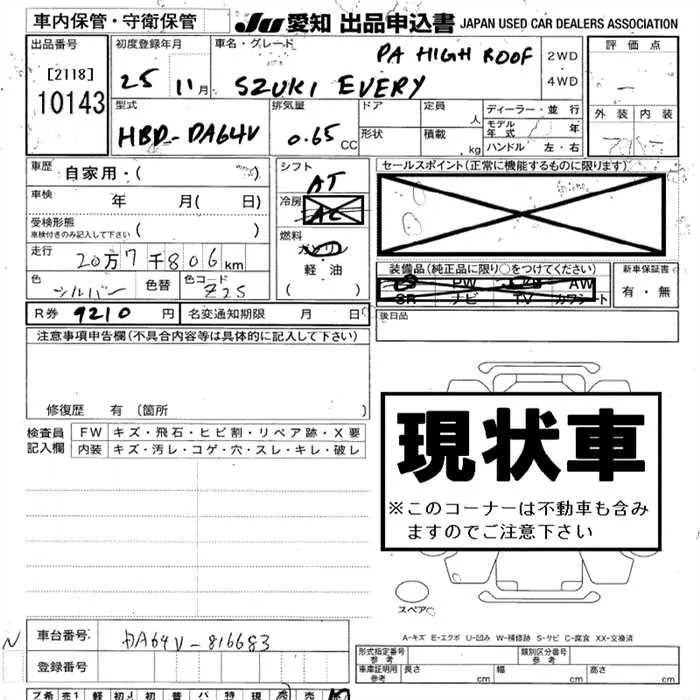 車内保管・守衛保管
JU 愛知 出品申込書 JAPAN USED CAR DEALERS ASSOCIATION
出品番号
[2118]
10143
初度登録年月
25 11月
車名・グレード
PA HIGH ROOF
SZUKI EVERY
2WD
4WD
評価点
外装 内装
型式
HBD-DA64V
排気量
0.65 CC
ドア
定員
人
形状
積載
kg
ディーラー・並行
モデル年式
年
ハンドル 左・右
車歴
自家用・( )
車検
年 月( 日)
受検形態
車検付きのみ記入して下さい ( )
走行
20万7千806km
色
シルバー
色替
色コード
Z2S
シフト
AT
冷房
AC
燃料
ガソリン
軽・油
( )
セールスポイント(正常に機能するものに限ります)
装備品(純正品に限り○をつけてください)
PW AW
SR ナビ TV カワシート
新車保証書
有・無
R券 9210 円
名変通知期限 月 日
後日品
注意事項申告欄(不具合内容等は具体的に記入して下さい)
修復歴 有 〔箇所 〕
検査員記入欄
FW キズ・飛石・ヒビ割・リペア跡・X要
内装 キズ・汚レ・コゲ・穴・スレ・キレ・破レ
現状車
※このコーナーは不動車も含み
ますのでご注意下さい
スペア
A-キズ E-エクボ U-凹み W-補修跡 S-サビ C-腐食 XX-交換済
N
車台番号: DA64V-816683
登録番号
形式指定番号
参考
類別区分番号
参考
車庫証明用
参考
長さ cm
幅 cm
高さ cm